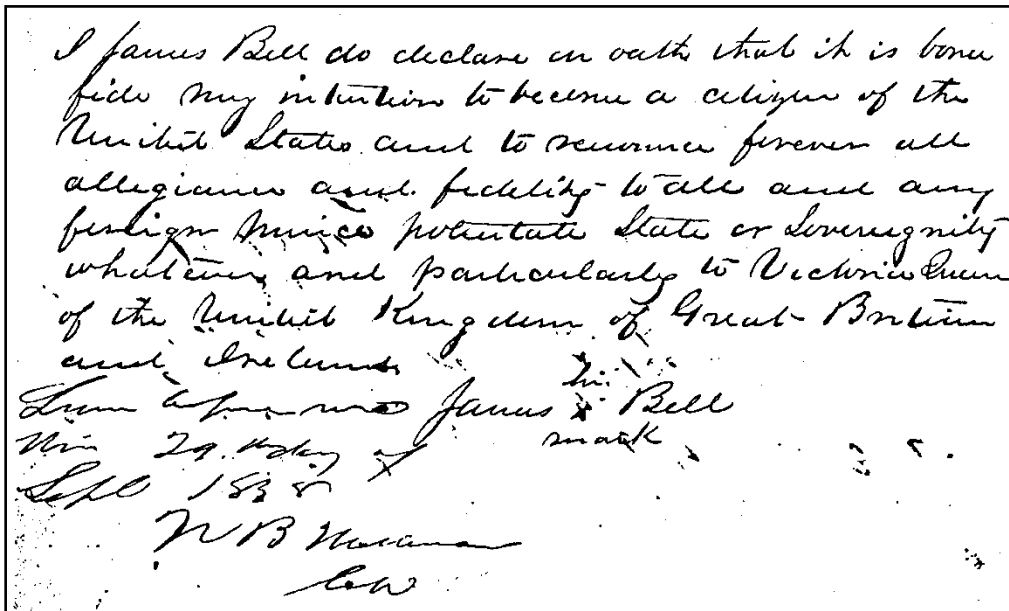 I James Bell do declare on oath that it is bona
fide my intention to become a citizen of the
United States and to renounce forever all
allegiance and fidelity to all and any
foreign Prince potentate State or Sovereignity
whatever and particularly to Victoria Queen
of the United Kingdom of Great Britian
and Ireland
his
Sworn before me James x Bell
mark
this 29th day of
Sept 1838
W B